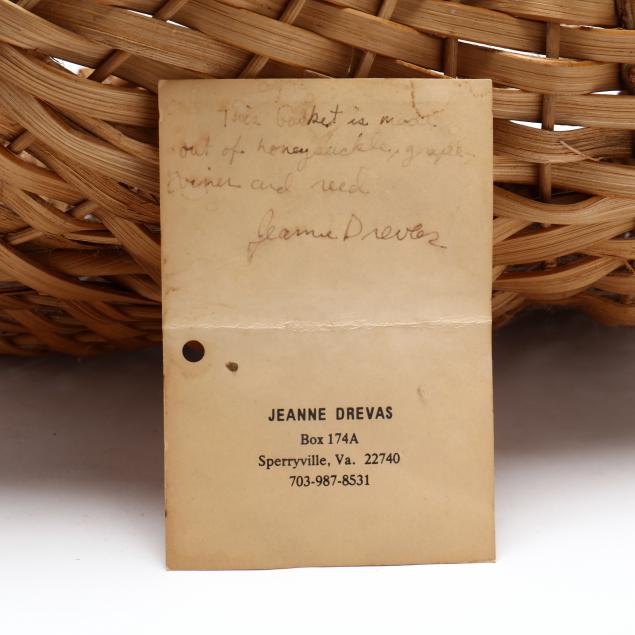 This basket is made
out of honeysuckle, grape-
vines and reed
Jeanne Drevas
JEANNE DREVAS
Box 174A
Sperryville, Va. 22740
703-987-8531